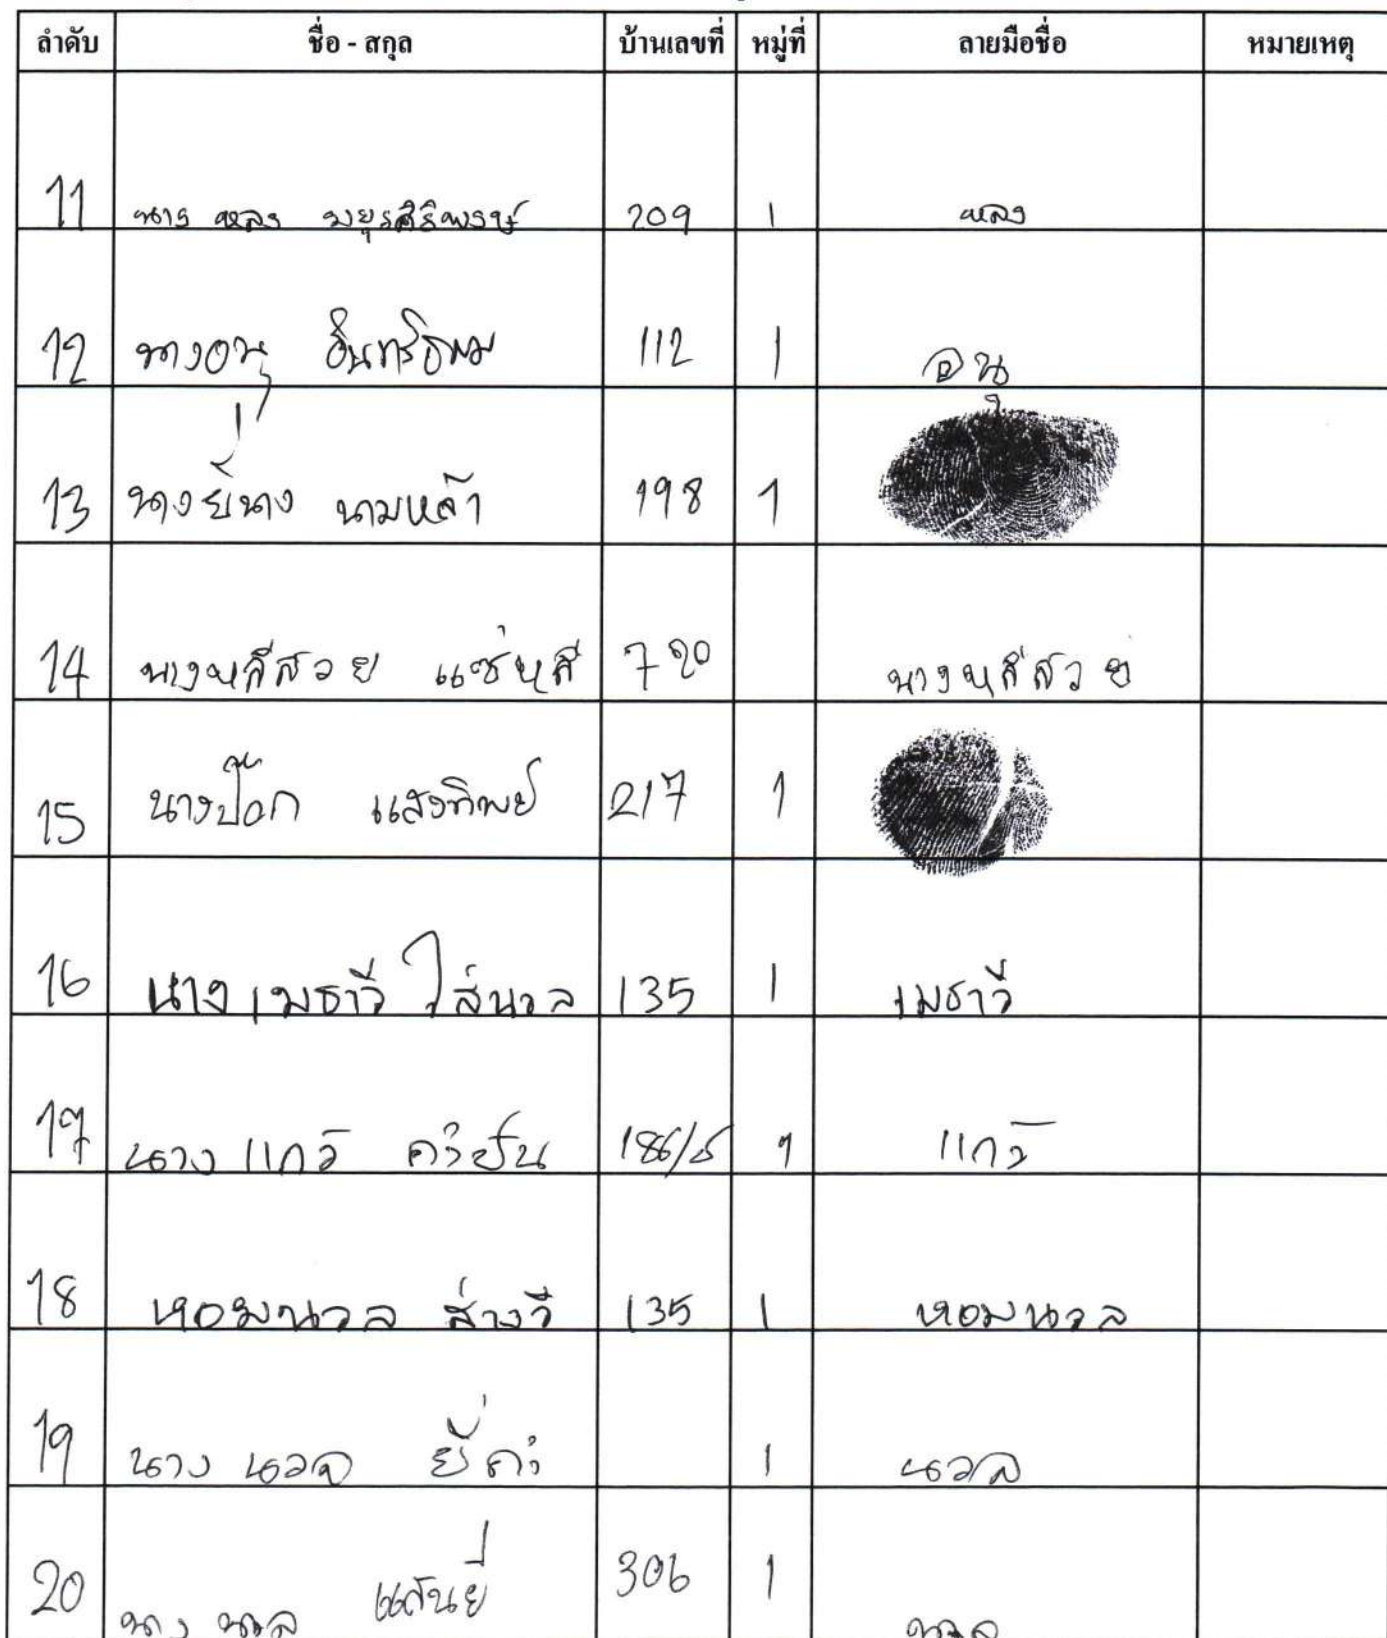 ลำดับ ชื่อ - สกุล บ้านเลขที่ หมู่ที่ ลายมือชื่อ หมายเหตุ
11 นาง หลง มยุรศิริพงษ์ 209 1 หลง
12 นางอนุ 112 1 อนุ
13 นางยี่นาง นามหล้า 198 1
14 นางหลีสวย แซ่หลี 720 นางหลีสวย
15 นางป๊อก แสงทิพย์ 217 1
16 นาง เมธาวี ใส่นวล 135 1 เมธาวี
17 นาง แก้ว คำปัน 1 แก้ว
18 หอมนวล ส่างวี 135 1 หอมนวล
19 นาง นวล ยี่คำ 1 นวล
20 นาง นวล แสนยี่ 306 1 นวล